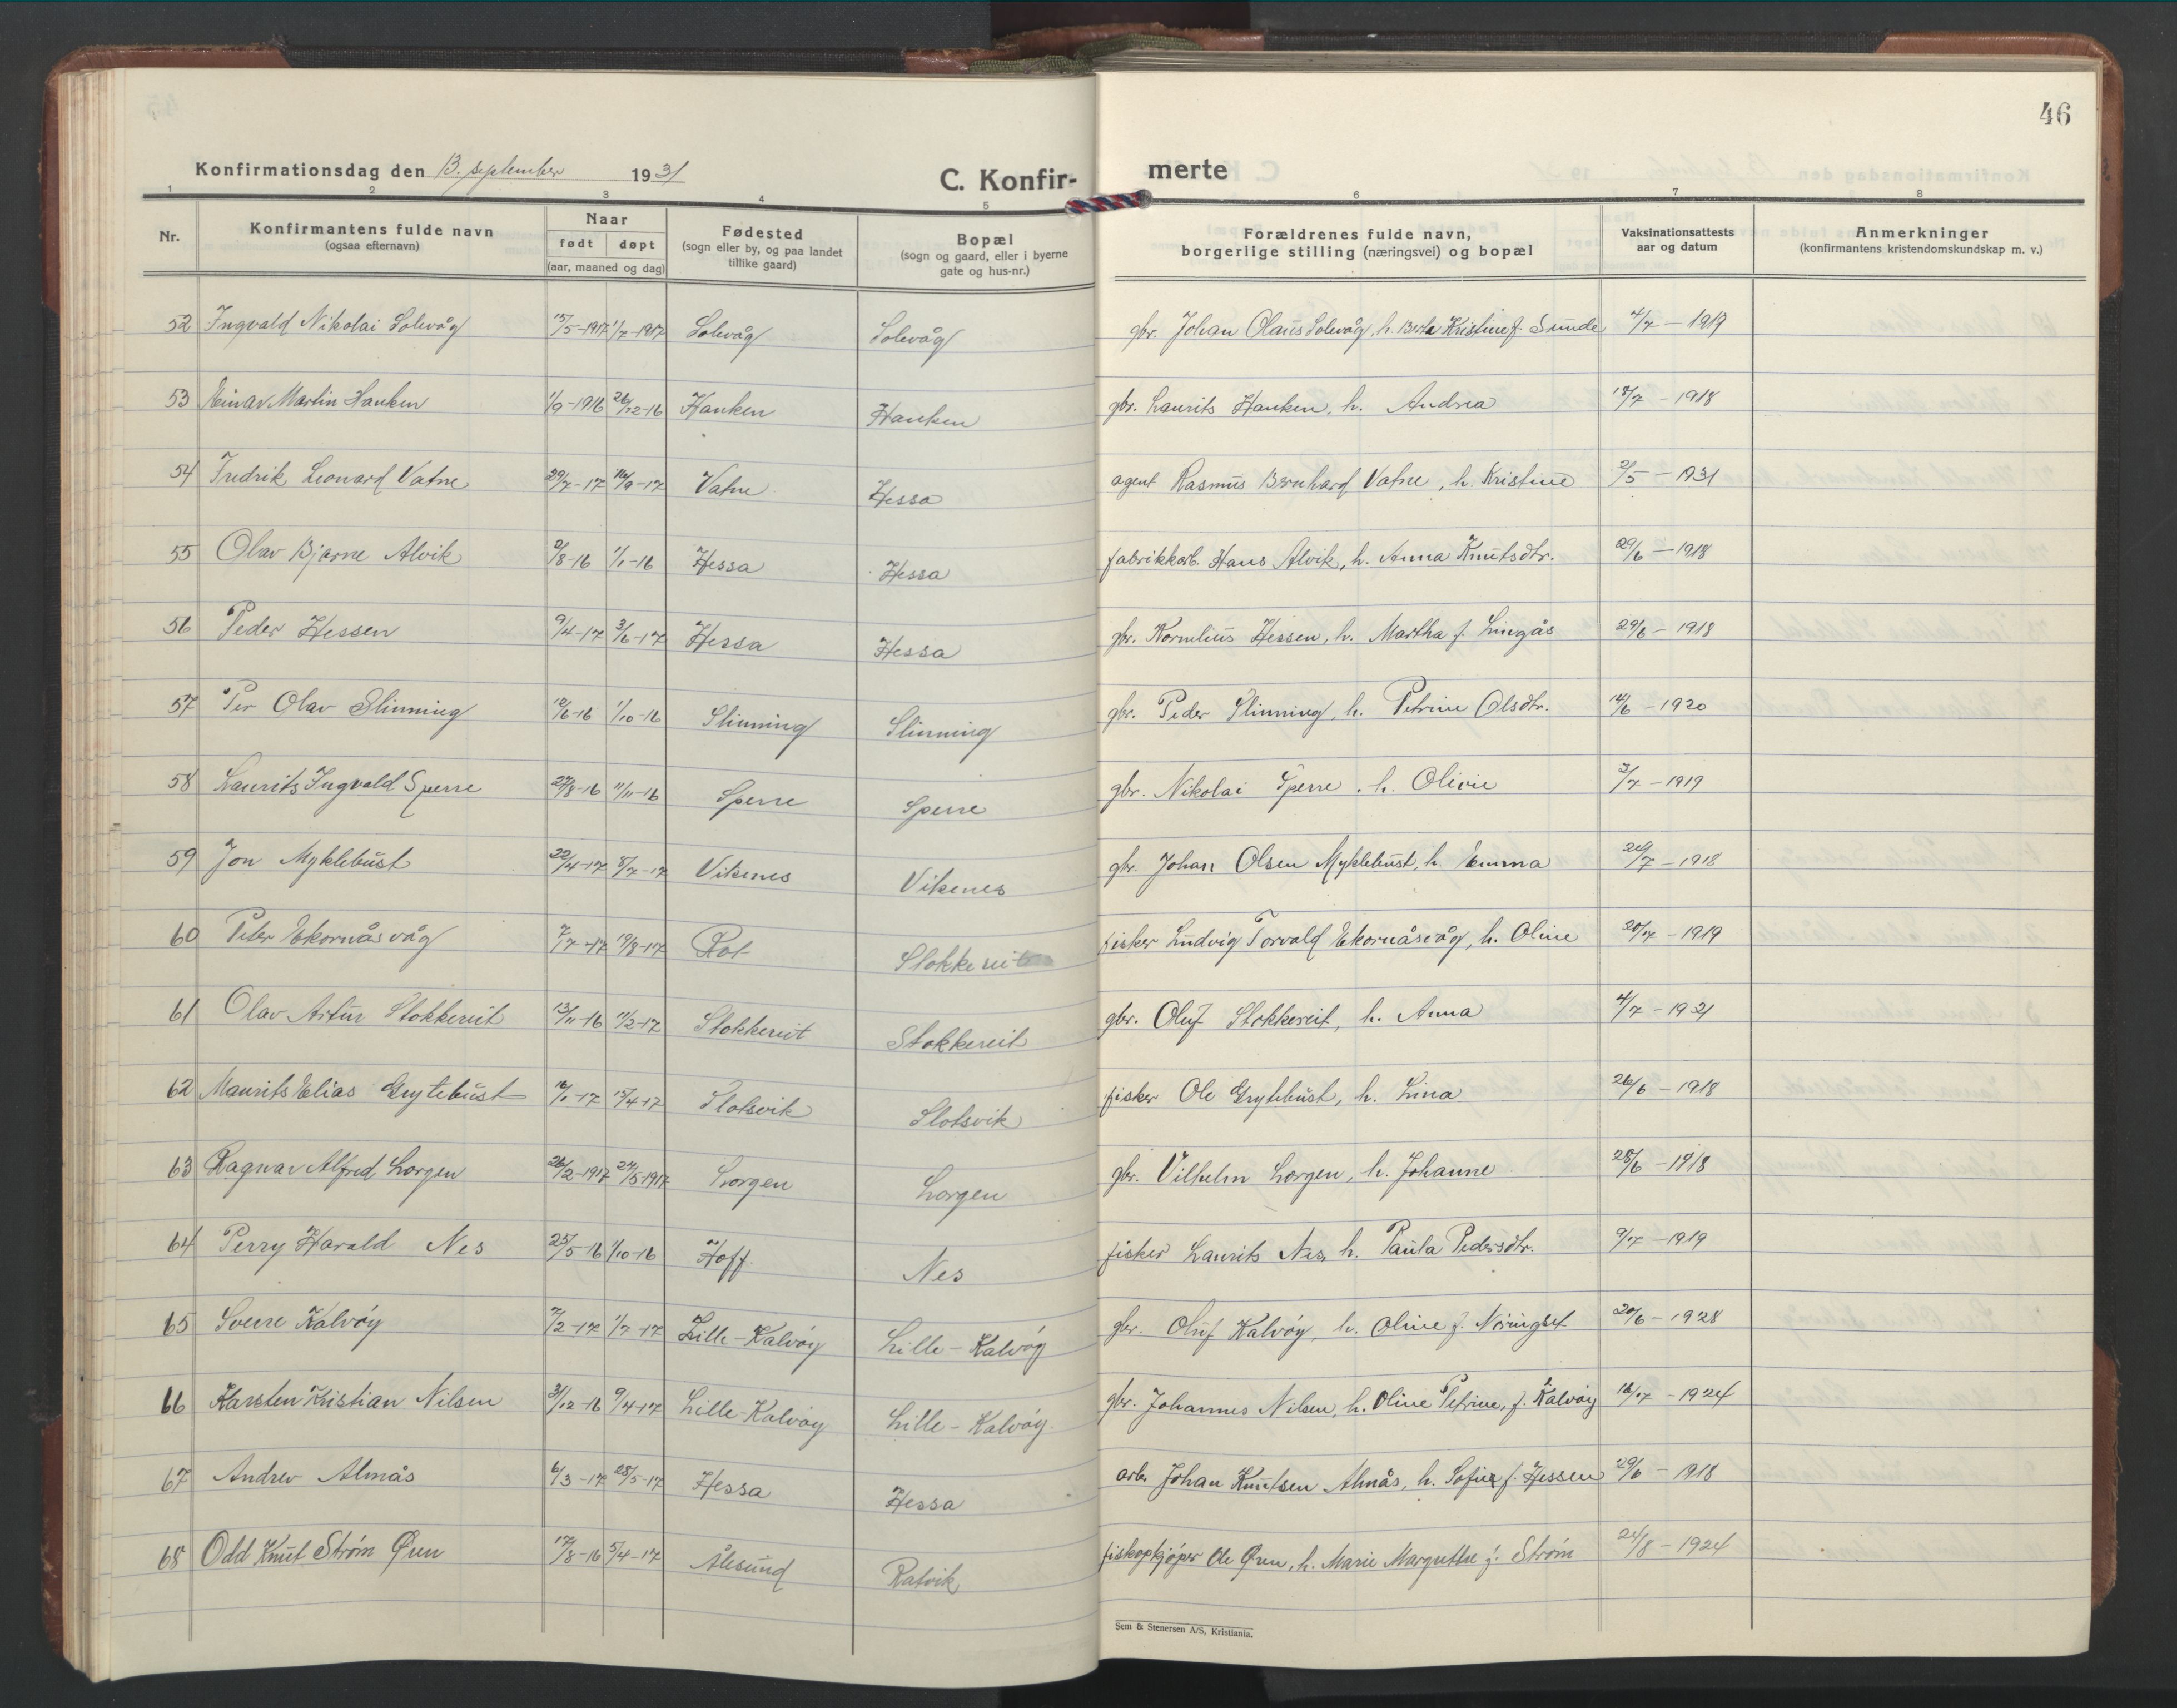 46
Konfirmationsdag den 13. september 1931 C. Konfir- merte
1 2 3 4 5 6 7 8
Nr. Konfirmantens fulde navn (ogsaa efternavn) Naar født døpt (aar, maaned og dag) Fødested (sogn eller by, og paa landet tillike gaard) Bopæl (sogn og gaard, eller i byerne gate og hus-nr.) Forældrenes fulde navn, borgerlige stilling (næringsvei) og bopæl Vaksinationsattests aar og datum Anmerkninger (konfirmantens kristendomskundskap m. v.)
52 Ingvald Nikolai Solevåg 15/5-1917 1/7-1917 Solevåg Solevåg gbr. Johan Olaus Solevåg, h. Berte Kristine f. Sunde 4/7 - 1919
53 Einar Martin Hanken 1/9-1916 26/12-16 Hanken Hanken gbr. Laurits Hanken, h. Andrea 18/7 - 1918
54 Fredrik Leonard Vatne 29/7-17 16/9-17 Vatne Hessa agent Rasmus Bernhard Vatne, h. Kristine 2/5 - 1931
55 Olav Bjarne Alvik 2/8-16 1/1-16 Hessa Hessa fabrikkarb. Hans Alvik, h. Anna Knutsdtr. 29/6 - 1918
56 Peder Hessen 9/4-17 3/6-17 Hessa Hessa gbr. Kornelius Hessen, h. Martha f. Lingås 29/6 - 1918
57 Per Olav Slinning 12/6-16 1/10-16 Slinning Slinning gbr. Peder Slinning, h. Petrine Olsdtr. 14/6 - 1920
58 Laurits Ingvald Sperre 27/8-16 11/11-16 Sperre Sperre gbr. Nikolai Sperre, h. Olivie 3/7 - 1919
59 Jon Myklebust 22/4-17 8/7-17 Vikenes Vikenes gbr. Johan Olsen Myklebust, h. Emma 24/7 - 1918
60 Peter Ekornåsvåg 7/7-17 19/8-17 Rot Stokkereit fisker Ludvig Torvald Ekornåsvåg, h. Oline 20/7 - 1919
61 Olav Artur Stokkereit 13/11-16 11/2-17 Stokkereit Stokkereit gbr. Oluf Stokkereit, h. Anna 4/7 - 1921
62 Maurits Elias Grytebust 16/1-17 15/4-17 Slotsvik Slotsvik fisker Ole Grytebust, h. Lina 26/6 - 1918
63 Ragnar Alfred Lorgen 26/2-1917 27/5-1917 Lorgen Lorgen gbr. Vilhelm Lorgen, h. Johanne 28/6 - 1918
64 Perry Harald Nes 25/5-16 1/10-16 Hoff Nes fisker Laurits Nes, h. Paula Pedersdtr. 9/7 - 1919
65 Sverre Kalvøy 7/2-17 1/7-17 Lille-Kalvøy Lille-Kalvøy gbr. Oluf Kalvøy, h. Oline f. Nøringset 20/6 - 1928
66 Karsten Kristian Nilsen 31/12-16 9/4-17 Lille-Kalvøy Lille-Kalvøy gbr. Johannes Nilsen, h. Oline Petrine, f. Kalvøy 18/7 - 1924
67 Andrew Almås 6/3-17 28/5-17 Hessa Hessa arb. Johan Knutsen Almås, h. Sofie f. Hessen 29/6 - 1918
68 Odd Knut Strøm Øren 17/8-16 5/4-17 Ålesund Ratvik fiskopkjøper Ole Øren, h. Marie Margrethe f. Strøm 24/8 - 1924
Sem & Stenersen A/S, Kristiania.